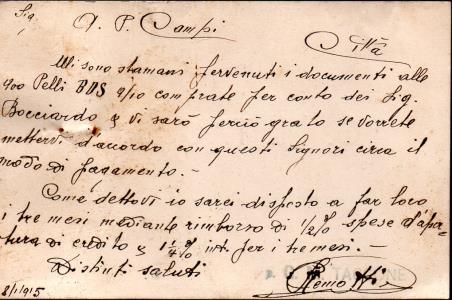 Sig. A. P. Campi
Città
Mi sono stamani pervenuti i documenti alle
900 Pelli BDS 9/10 comprate per conto dei Sig.
Bocciardo & vi sarò perciò grato se vorrete
mettervi d'accordo con questi Signori circa il
modo di pagamento. -
Come dettovi io sarei disposto a far loro
i tre mesi mediante rimborso di 1/2% spese d'aper-
tura di credito & 1 1/4% int. per i tre mesi. -
Distinti saluti
2/1/915